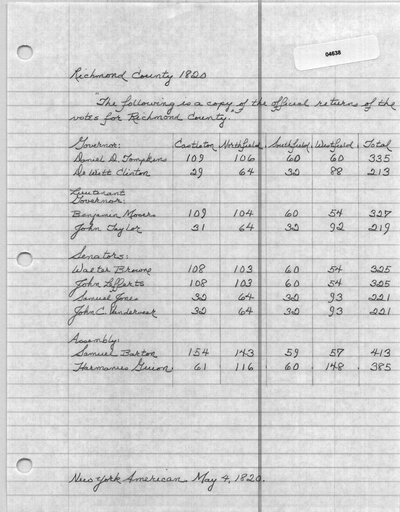 04638
Richmond County 1820
"The following is a copy of the official returns of the
votes for Richmond County."
Governor: Castleton Northfield Southfield Westfield Total
Daniel D. Tompkins 109 106 60 60 335
De Witt Clinton 29 64 32 88 213
Lieutenant
Governor:
Benjamin Moers 109 104 60 54 327
John Taylor 31 64 32 92 219
Senators:
Walter Browne 108 103 60 54 325
John Lefferts 108 103 60 54 325
Samuel Jones 32 64 32 93 221
John C. Vanderveer 32 64 32 93 221
Assembly:
Samuel Barton 154 143 59 57 413
Harmanus Guion 61 116 60 148 385
New York American May 4, 1820.